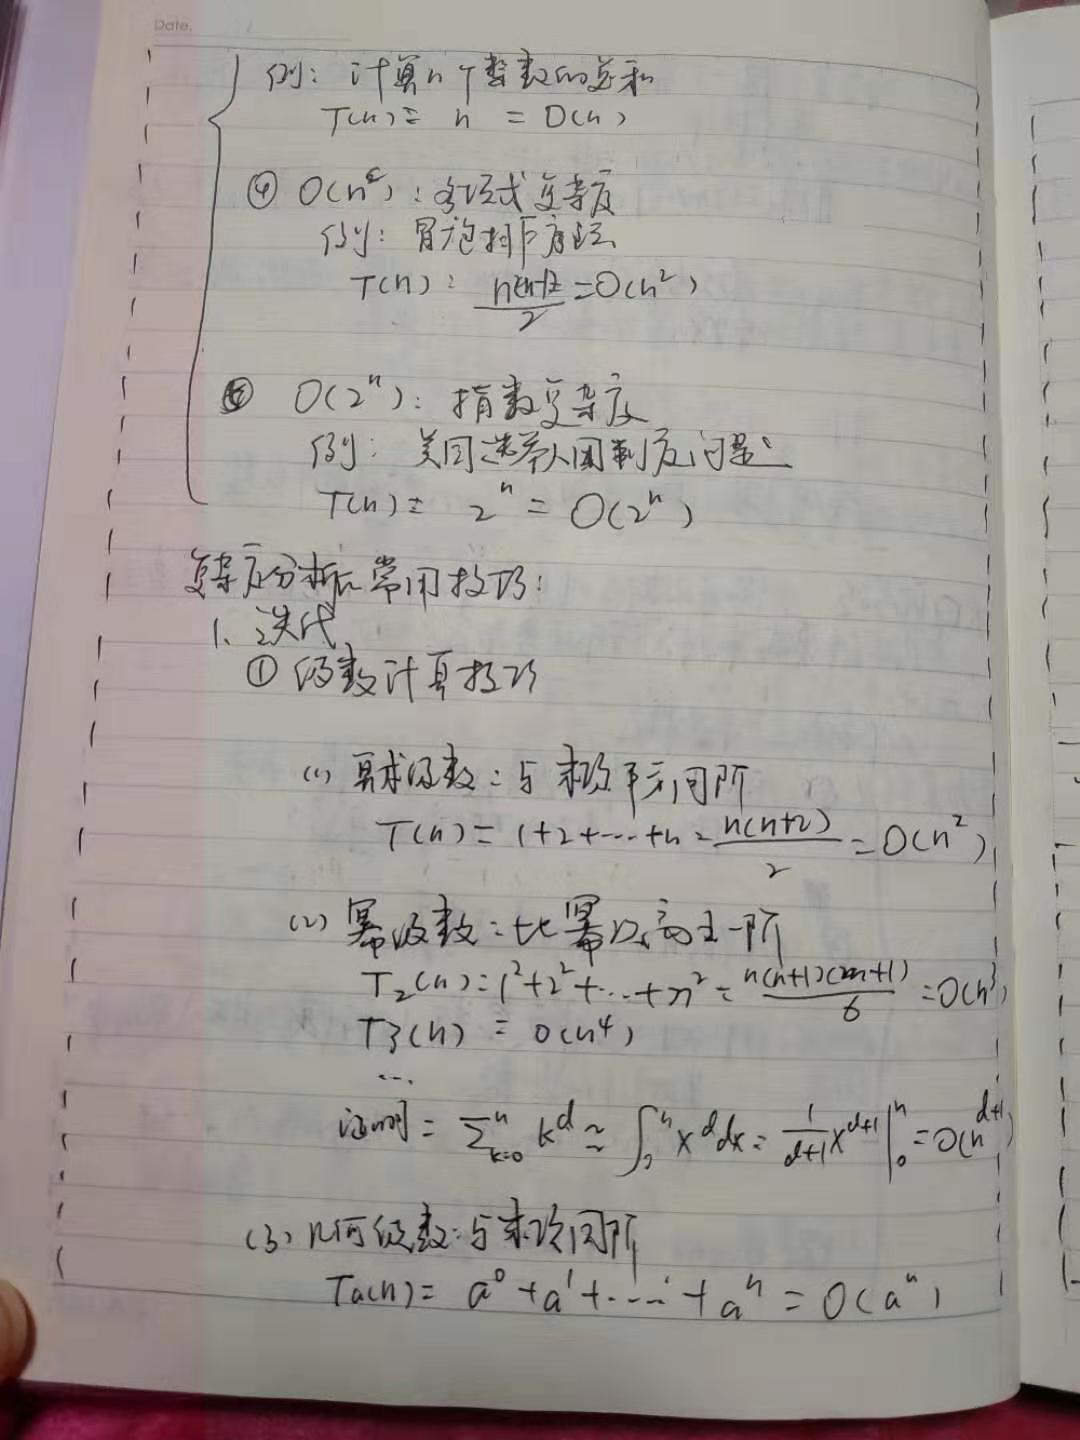 Date.
例: 计算n个整数的总和
T(n) = n = O(n)
④ O(nᶜ): 多项式复杂度
例: 冒泡排序最坏
T(n): =O(n²)
⑤ O(2ⁿ): 指数复杂度
例: 美国选举人团制度问题
T(n) = 2ⁿ = O(2ⁿ)
复杂度分析常用技巧:
1. 迭代
① 级数计算技巧
(1) 算术级数: 与末项平方同阶
T(n) = 1+2+…+n = n(n+2)/2 = O(n²)
(2) 幂级数: 比幂次高出一阶
T₂(n) = 1²+2²+…+n² = n(n+1)(2n+1)/6 = O(n³)
T3(n) = O(n⁴)
...
证明: ∑ₖ₌₀ⁿ kᵈ ≈ ∫₀ⁿ xᵈdx = 1/(d+1) xᵈ⁺¹|₀ⁿ = O(nᵈ⁺¹)
(3) 几何级数: 与末项同阶
Ta(n) = a⁰+a¹+……+aⁿ = O(aⁿ)